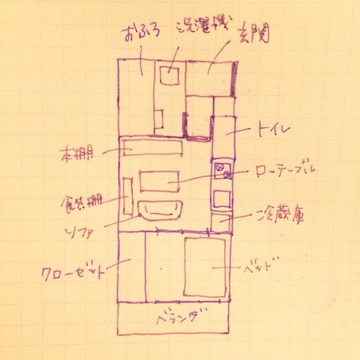 おふろ
洗濯機
玄関
トイレ
本棚
ローテーブル
食器棚
冷蔵庫
ソファ
クローゼット
ベッド
ベランダ